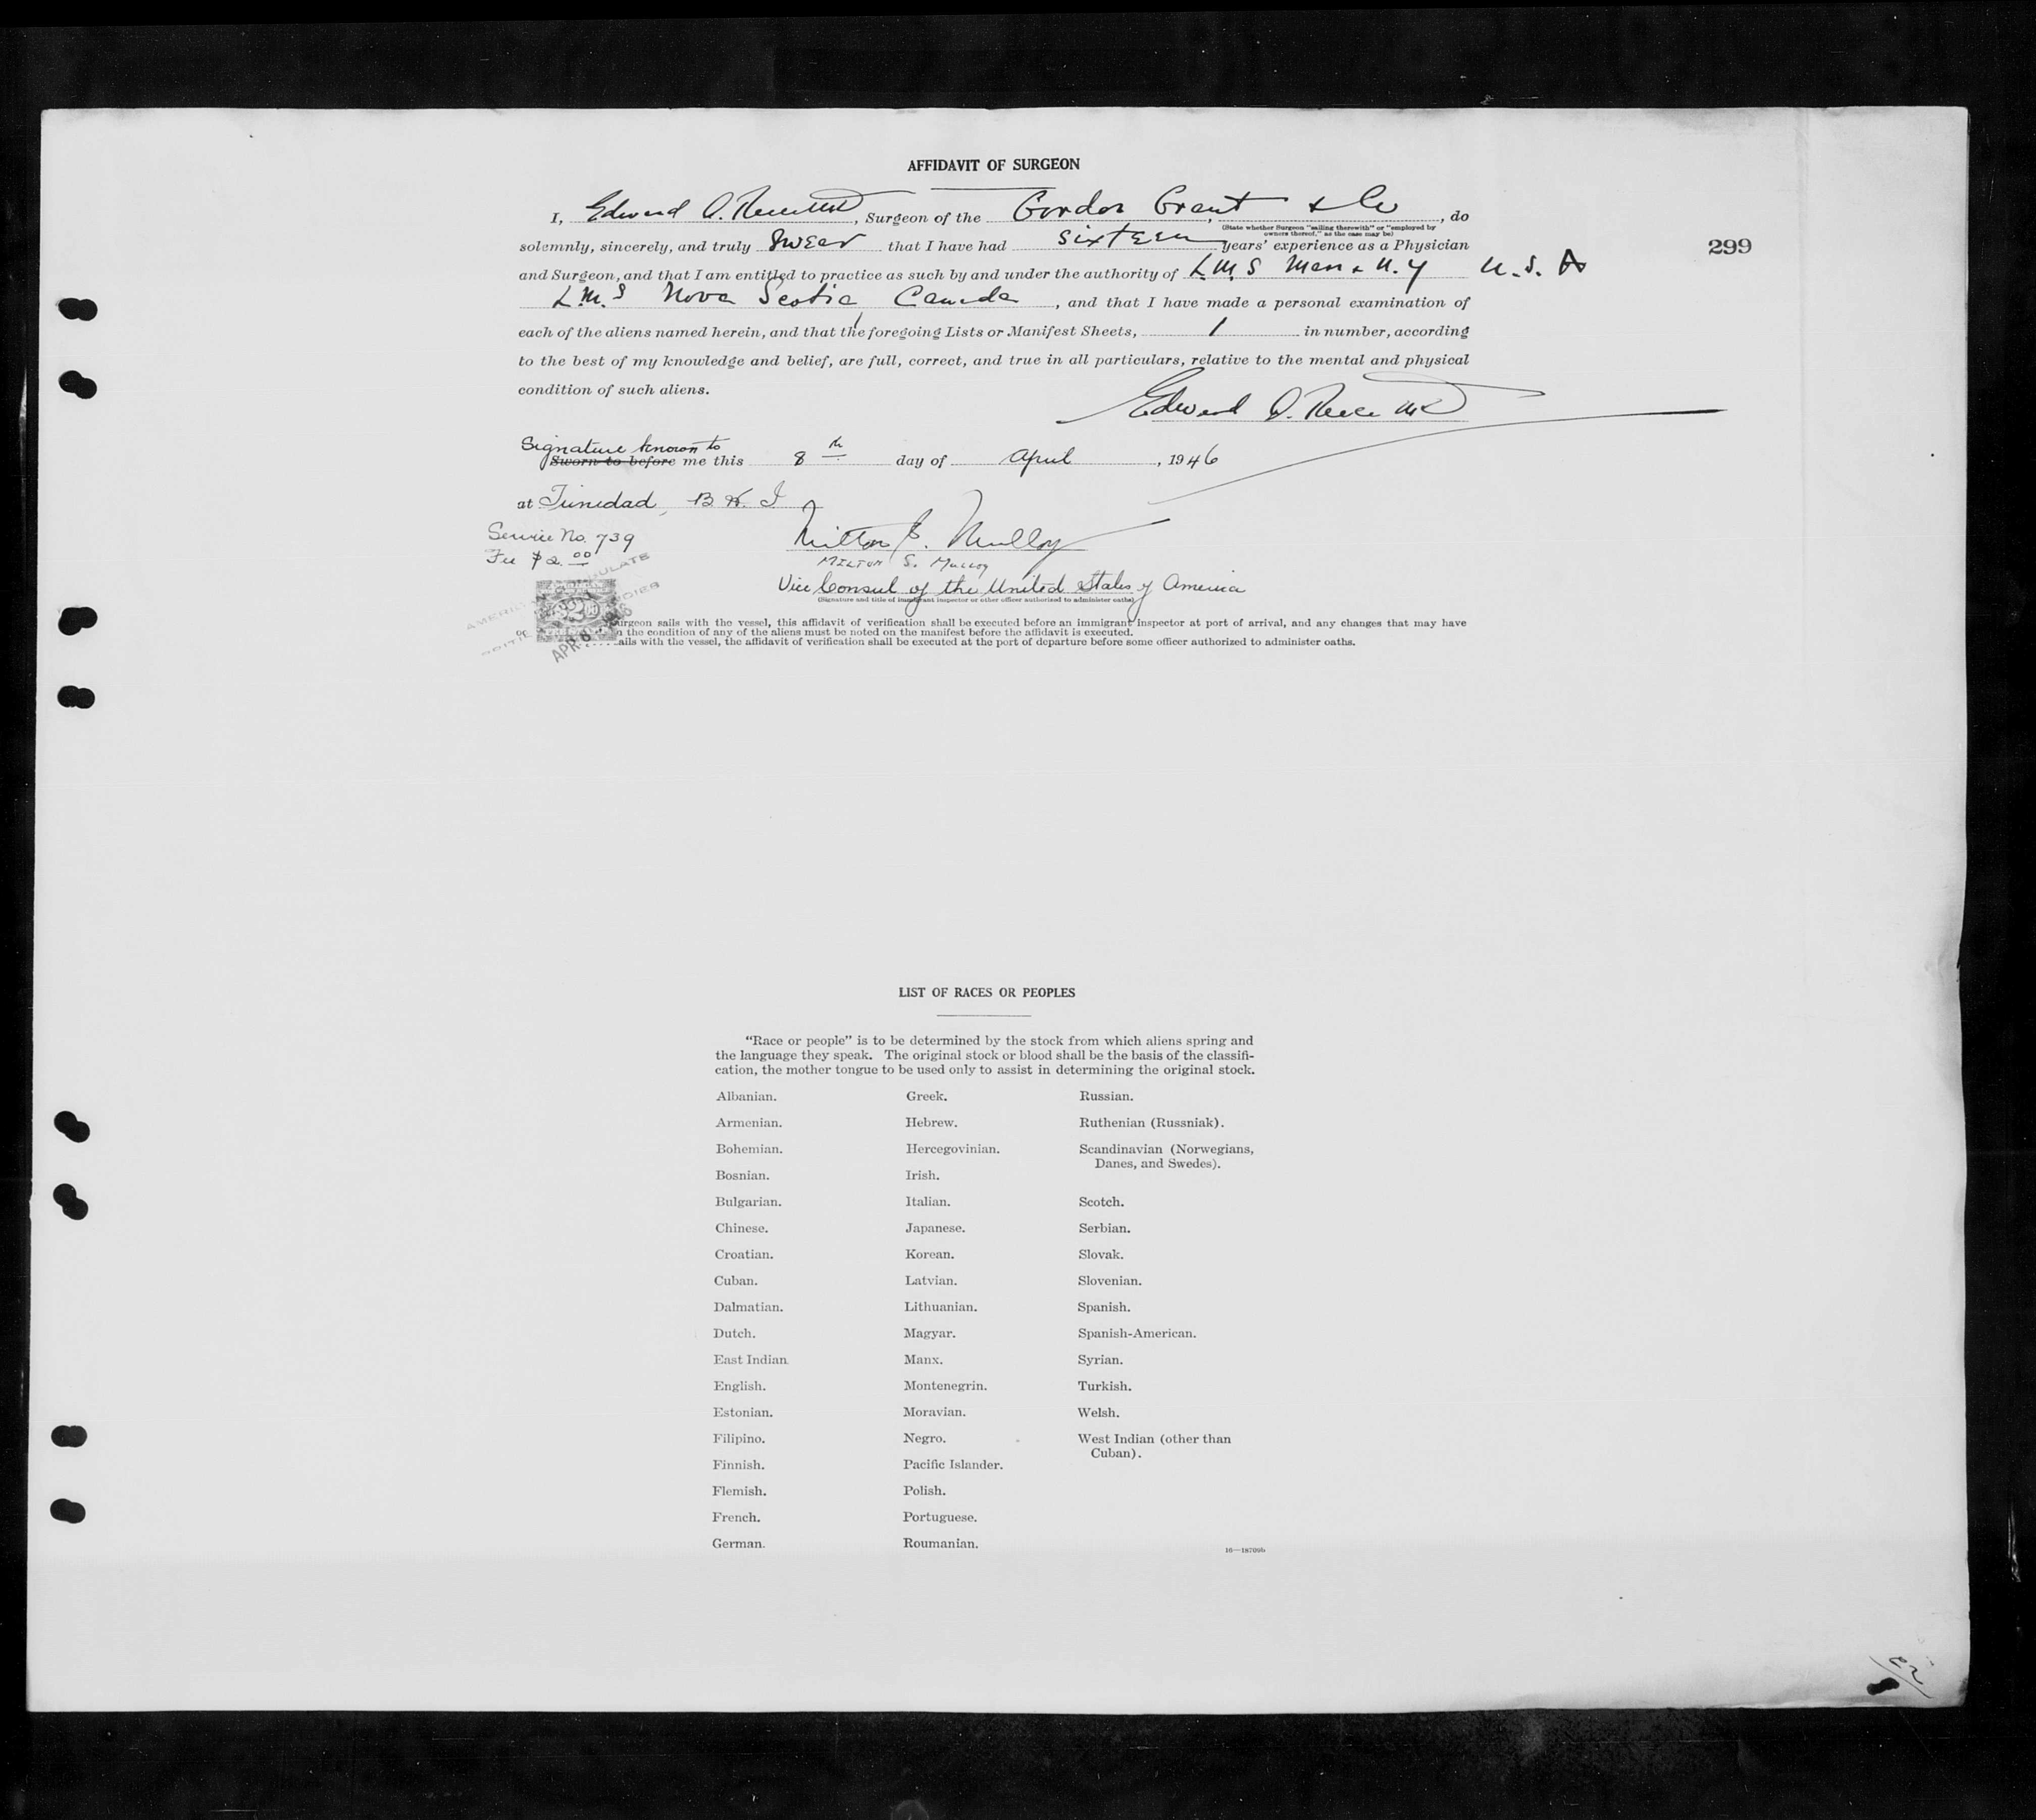 AFFIDAVIT OF SURGEON
I, Edward A. Reece MD, Surgeon of the Gordon Grant & Co, do
(State whether Surgeon "sailing therewith" or "employed by
owners thereof," as the case may be)
solemnly, sincerely, and truly swear that I have had sixteen years' experience as a Physician
299
and Surgeon, and that I am entitled to practice as such by and under the authority of L.M.S Mass & N.Y U.S. A
L.M.S Nova Scotia Canada, and that I have made a personal examination of
each of the aliens named herein, and that the foregoing Lists or Manifest Sheets, 1 in number, according
to the best of my knowledge and belief, are full, correct, and true in all particulars, relative to the mental and physical
condition of such aliens.
Edward A. Reece MD
Signature known to
Sworn to before me this 8th day of April, 1946
at Trinidad, B.W.I
Service No. 739
Fee $2.00
Milton S. Mulloy
MILTON S. Mulloy
Vice Consul of the United States of America
(Signature and title of immigrant inspector or other officer authorized to administer oaths)
urgeon sails with the vessel, this affidavit of verification shall be executed before an immigrant inspector at port of arrival, and any changes that may have
n the condition of any of the aliens must be noted on the manifest before the affidavit is executed.
ails with the vessel, the affidavit of verification shall be executed at the port of departure before some officer authorized to administer oaths.
APR 8 1946
LIST OF RACES OR PEOPLES
"Race or people" is to be determined by the stock from which aliens spring and
the language they speak. The original stock or blood shall be the basis of the classifi-
cation, the mother tongue to be used only to assist in determining the original stock.
Albanian.
Armenian.
Bohemian.
Bosnian.
Bulgarian.
Chinese.
Croatian.
Cuban.
Dalmatian.
Dutch.
East Indian
English.
Estonian.
Filipino.
Finnish.
Flemish.
French.
German.
Greek.
Hebrew.
Hercegovinian.
Irish.
Italian.
Japanese.
Korean.
Latvian.
Lithuanian.
Magyar.
Manx.
Montenegrin.
Moravian.
Negro.
Pacific Islander.
Polish.
Portuguese.
Roumanian.
Russian.
Ruthenian (Russniak).
Scandinavian (Norwegians,
Danes, and Swedes).
Scotch.
Serbian.
Slovak.
Slovenian.
Spanish.
Spanish-American.
Syrian.
Turkish.
Welsh.
West Indian (other than
Cuban).
16—18709b